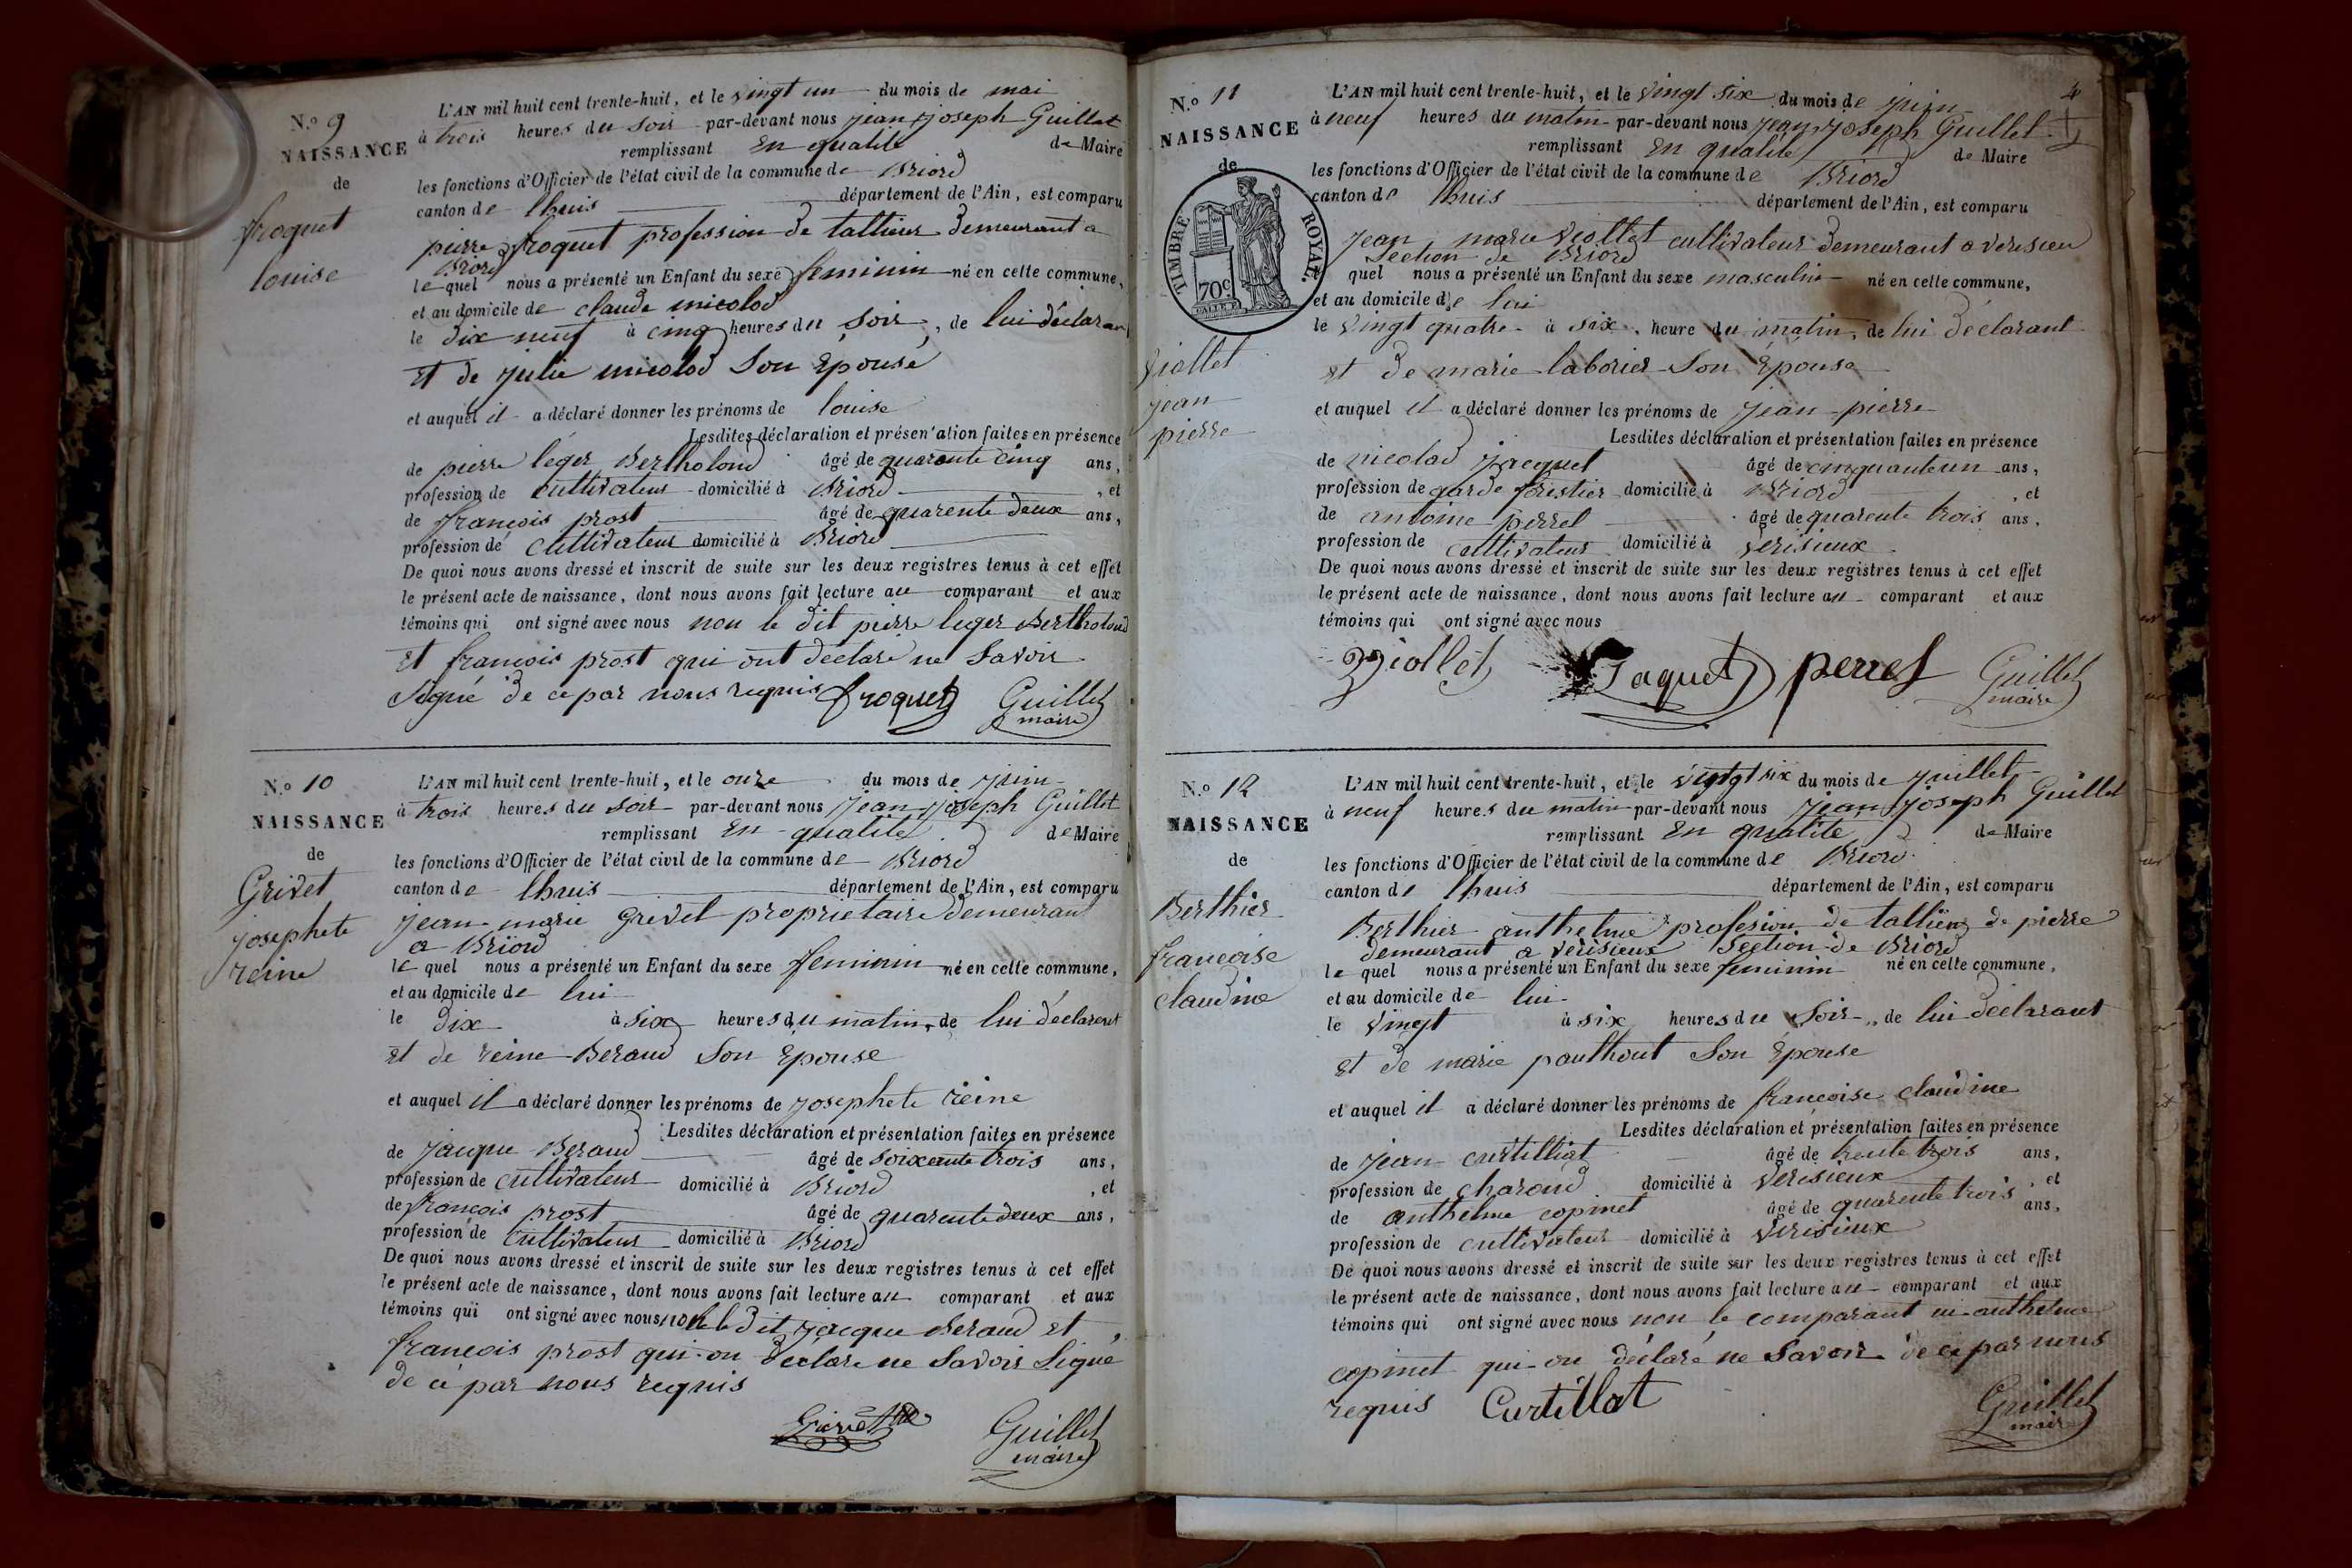 N.o 9
NAISSANCE
de
froquet
louise
L'AN mil huit cent trente-huit, et le vingt un du mois de mai
à trois heures du soir par-devant nous jean joseph Guillet
remplissant En qualité de Maire
les fonctions d'Officier de l'état civil de la commune de Briord
canton de lhuis département de l'Ain, est comparu
pierre froquet profession de tallieur demeurant a
Briord
le quel nous a présenté un Enfant du sexe feminin né en cette commune,
et au domicile de claude nicolod
le dix neuf à cinq heures du soir, de lui déclaran
et de julie nicolod son Epouse
et auquel il a déclaré donner les prénoms de louise
Lesdites déclaration et présentation faites en présence
de pierre léger Bertholond âgé de quarante cinq ans,
profession de cultivateur domicilié à Briord, et
de francois prost âgé de quarente deux ans,
profession de cultivateur domicilié à Briord
De quoi nous avons dressé et inscrit de suite sur les deux registres tenus à cet effet
le présent acte de naissance, dont nous avons fait lecture au comparant et aux
témoins qui ont signé avec nous non le dit pierre leger Bertholond
et francois prost qui ont déclaré ne savoir
signé de ce par nous requis froquet Guillet
maire
N.o 10
NAISSANCE
de
Grivet
josephete
reine
L'AN mil huit cent trente-huit, et le onze du mois de juin
à trois heures du soir par-devant nous jean joseph Guillet
remplissant En qualité de Maire
les fonctions d'Officier de l'état civil de la commune de Briord
canton de lhuis département de l'Ain, est comparu
jean marie grivet proprietaire demeurant
a Briord
le quel nous a présenté un Enfant du sexe feminin né en cette commune,
et au domicile de lui
le dix à six heures du matin, de lui déclarent
et de reine Beraud son Epouse
et auquel il a déclaré donner les prénoms de josephete reine
Lesdites déclaration et présentation faites en présence
de jacque Beraud âgé de soixante trois ans,
profession de cultivateur domicilié à Briord, et
de francois prost âgé de quarente deux ans,
profession de cultivateur domicilié à Briord
De quoi nous avons dressé et inscrit de suite sur les deux registres tenus à cet effet
le présent acte de naissance, dont nous avons fait lecture au comparant et aux
témoins qui ont signé avec nous non le dit jacque Beraud et
francois prost qui on déclaré ne savoir signé
de ce par nous requis
Guillet
maire
4
N.o 11
NAISSANCE
de
TIMBRE ROYAL
70c
viollet
jean
pierre
L'AN mil huit cent trente-huit, et le vingt six du mois de juin
à neuf heures du matin par-devant nous jean joseph Guillet
remplissant En qualité de Maire
les fonctions d'Officier de l'état civil de la commune de Briord
canton de lhuis département de l'Ain, est comparu
jean marie viollet cultivateur demeurant a verisieu
section de Briord
quel nous a présenté un Enfant du sexe masculin né en cette commune,
et au domicile de lui
le vingt quatre à six heure du matin, de lui déclarant
et de marie laborier son Epouse
et auquel il a déclaré donner les prénoms de jean pierre
Lesdites déclaration et présentation faites en présence
de nicolad jacquet âgé de cinquante un ans,
profession de garde forestier domicilié à Briord, et
de antoine perret âgé de quarente trois ans,
profession de cultivateur domicilié à verisieux
De quoi nous avons dressé et inscrit de suite sur les deux registres tenus à cet effet
le présent acte de naissance, dont nous avons fait lecture au comparant et aux
témoins qui ont signé avec nous
viollet Jaquet perret Guillet
maire
N.o 12
NAISSANCE
de
Berthier
francoise
claudine
L'AN mil huit cent trente-huit, et le vingt six du mois de juillet
à neuf heures du matin par-devant nous jean joseph Guillet
remplissant En qualité de Maire
les fonctions d'Officier de l'état civil de la commune de Briord
canton de lhuis département de l'Ain, est comparu
Berthier anthelme profesion de tallieur de pierre
demeurant a verisieux section de Briord
le quel nous a présenté un Enfant du sexe feminin né en cette commune,
et au domicile de lui
le vingt à six heures du soir, de lui déclarant
et de marie pauthout son Epouse
et auquel il a déclaré donner les prénoms de francoise claudine
Lesdites déclaration et présentation faites en présence
de jean curtilliat âgé de trente trois ans,
profession de charond domicilié à verisieux, et
de anthelme copinet âgé de quarente trois ans,
profession de cultivateur domicilié à verisieux
De quoi nous avons dressé et inscrit de suite sur les deux registres tenus à cet effet
le présent acte de naissance, dont nous avons fait lecture au comparant et aux
témoins qui ont signé avec nous non le comparant ni anthelme
copinet qui on déclaré ne savoir de ce par nous
requis Curtillat Guillet
maire